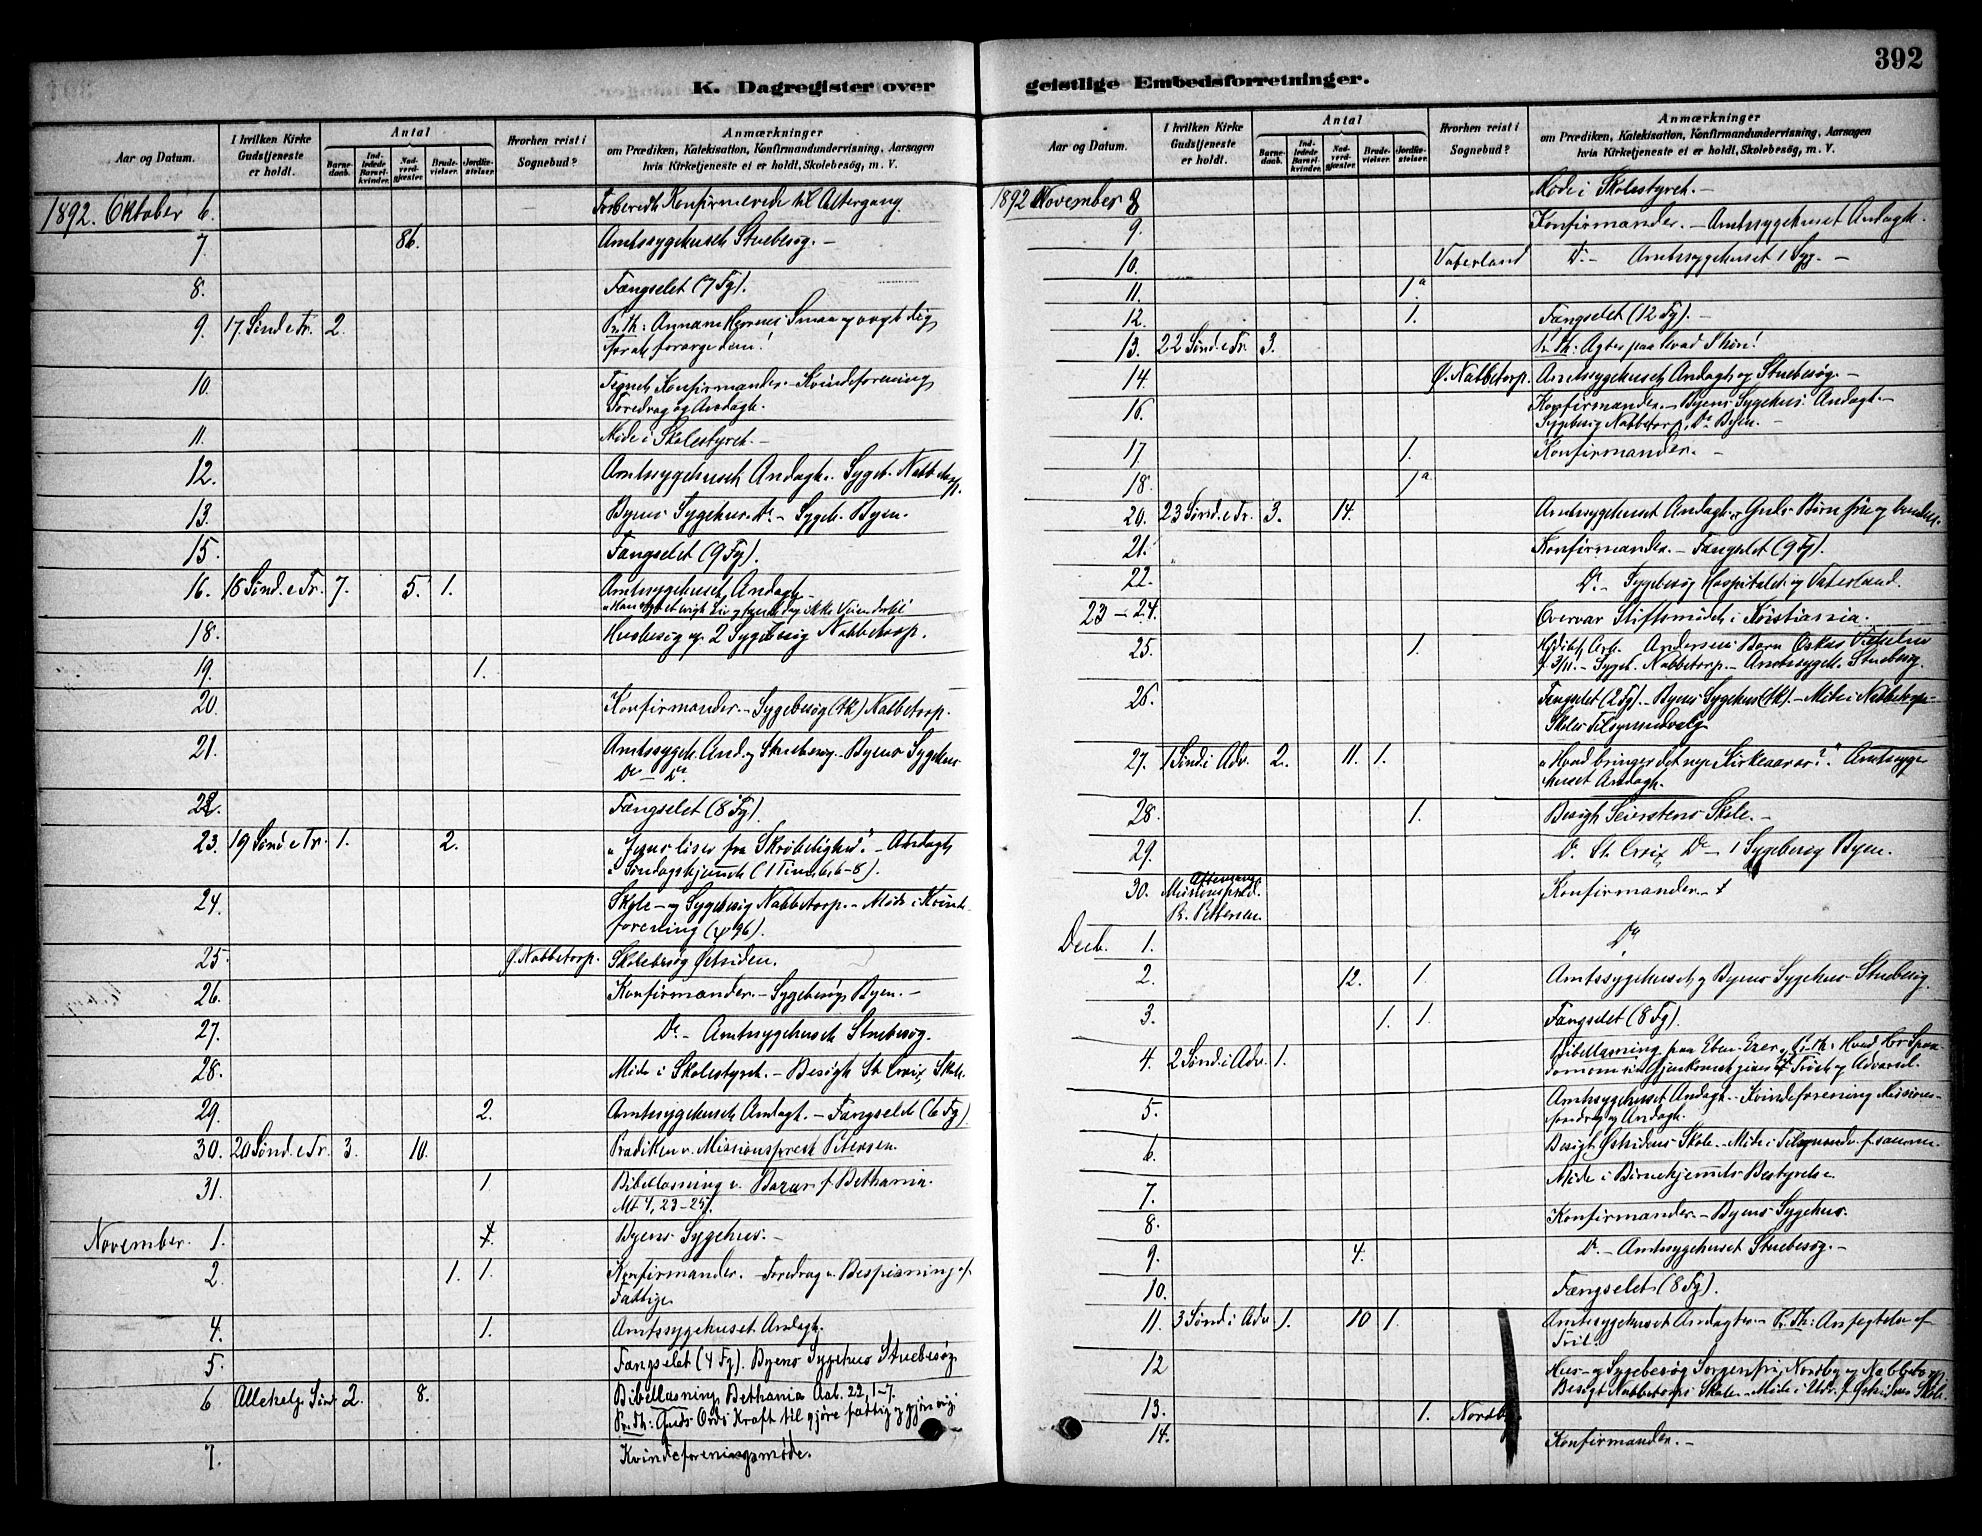 392
K. Dagregister over
geistlige Embedsforretninger.
Aar og Datum.
I hvilken Kirke Gudstjeneste er holdt.
Antal
Barnedaab.
Indledede Barselkvinder.
Nadverdgjæster.
Brudevielser.
Jordfæstelser.
Hvorhen reist i Sognebud?
Anmærkninger
om Prædiken, Katekisation, Konfirmandundervisning, Aarsagen
hvis Kirketjeneste ei er holdt, Skolebesøg, m. V.
1892. Oktober 6. Forberedte Konfirmerede til Altergang.
7. 86. Amtssygehuset Stuebesøg. –
8. Fængselet (7 Fg).
9. 17 Sønd e Tr. 2. Pr. Th:
forarge dem!
10. Konfirmander. – Kvindeforening
Foredrag og Andagt.
11. Møde i Skolestyret. –
12. Amtssygehuset Andagt. Sygeb. Nabbetorp.
13. Byens Sygehus Do – Sygeb. Byen.
15. Fængselet (9 Fg).
16. 18 Sønd. e Tr. 7. 5. 1. Amtssygehuset Andagt.
18. Husbesøg og 2 Sygebesøg Nabbetorp.
19. 1.
20. Konfirmander. – Sygebesøg Nabbetorp.
21. Amtssygeh. And. og Stuebesøg. – Byens Sygehus
Do – Do
22. Fængselet (8 Fg).
23. 19 Sønd e Tr. 1. 2. "Jesus løser fra Skrøbelighed." – Andagt
(1 Tim. 6, 6–8).
24. Skole- og Sygebesøg Nabbetorp. – Møde i Kvinde-
forening (4 96).
25. Ø. Nabbetorp. Skolebesøg Østsiden.
26. Konfirmander. – Sygebesøg Byen. –
27. Do – Amtssygehuset Stuebesøg.
28. Møde i Skolestyret. – Besøgt St. Croix Skole.
29. 2. Amtssygehuset Andagt. – Fængselet (6 Fg)
30. 20 Sønd. e Tr. 3. 10. Prædiken v. Missionsprest Petersen.
31. 1. Bibellæsning v. Bazar f. Bethania.
Mt 4, 23–25.
November. 1. Byens Sygehus. –
2. 1. 1. Konfirmander. – Foredrag v. Bespisning af
Fattige
4. 1. Amtssygehuset Andagt.
5. Fængselet (4 Fg). Byens Sygehus Stuebesøg
6 Allehelg. Sønd 2. 8. Bibellæsning Bethania Aab. 22, 1–7.
Pr. Th: Guds Ords Kraft til gjøre fattig og gjøre rig
7. Kvindeforeningsmøde.
Aar og Datum.
I hvilken Kirke Gudstjeneste er holdt.
Antal
Barnedaab.
Indledede Barselkvinder.
Nadverdgjæster.
Brudevielser.
Jordfæstelser.
Hvorhen reist i Sognebud?
Anmærkninger
om Prædiken, Katekisation, Konfirmandundervisning, Aarsagen
hvis Kirketjeneste ei er holdt, Skolebesøg, m. V.
1892 November 8 Møde i Skolestyret. –
9. Konfirmander. – Amtssygehuset Andagt.
10. Vaterland Do – Amtssygehuset 1 Syg. –
11. 1a
12. 1. Fængselet (12 Fg). –
13. 22 Sønd. e Tr. 3. Pr. Th: Agter paa hvad I høre!
14. Ø. Nabbetorp. Amtssygehuset Andagt og Stuebesøg. –
16. Konfirmander. – Byens Sygehus. Andagt. –
Sygebesøg Nabbetorp. Do Byen. –
17. 1. Konfirmander. –
18. 1a
20. 23 Sønd. e Tr. 3. 14. Amtssygehuset Andagt. Guds Børn frie og bundne.
21. Konfirmander. – Fængselet (9 Fg).
22. Do – Sygebesøg Hospitalet og Vaterland.
23 – 24. Overvar Stiftsmødet i Kristiania.
25. 1. Andersens Barn Oskar Vilhelm
3/11. – Sygeb. Nabbetorp. – Amtssygeh. Stuebesøg.
26. Fængselet (2 Fg). – Byens Sygehus – Møde i Nabbetorp
Skoles Tilsynsudvalg
27. 1 Sønd i Adv. 2. 11. 1. "Hvad bringer det nye Kirkeaar?" Amtssyge
huset Andagt.
28. 1. Besøgt Seierstens Skole. –
29. Do St. Croix Do – 1 Sygebesøg Byen.
30. Aftensang Konfirmander. –
R. Petersen.
Decb. 1. Do
2. 12. 1. Amtssygehuset og Byens Sygehus Stuebesøg
3. 1. 1. Fængselet (8 Fg).
4. 2 Sønd. i Adv. 1. Bibellæsning paa Eben-Ezer. Pr. Th:
Trøst og Advarsel.
5. Amtssygehuset Andagt. – Kvindeforening Missions-
foredrag og Andagt.
6. Besøgt Østsidens Skole. – Møde i Tilsynsudv. f. samme.
7. Møde i Børnehjemmets Bestyrelse.
8. Konfirmander. – Byens Sygehus.
9. 4. Do. – Amtssygehuset Stuebesøg. –
10. Fængselet (8 Fg).
11. 3 Sønd i Adv. 1. 10 1. Amtssygehuset Andagt. – Pr. Th: Anfegtelse af
Tvil.
12 Hus- og Sygebesøg Sorgenfri, Nordby og Nabbetorp
Besøgt Nabbetorps Skole. – Møde i Udv. f. Østsidens Skole.
13. 1. Nordby.
14. Konfirmander. –